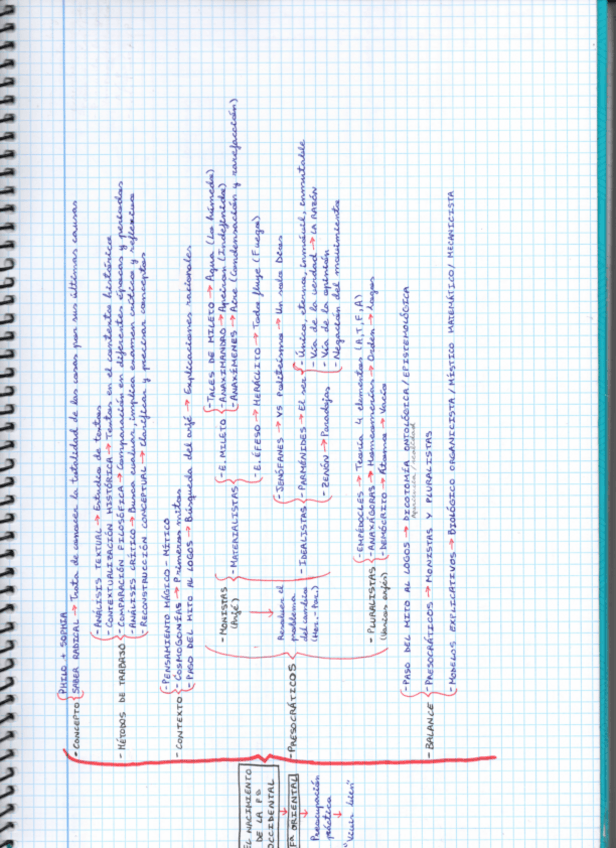 EL NACIMIENTO
DE LA Fª
OCCIDENTAL
Fª ORIENTAL
↓
Preocupación
práctica
↓
"Vivir bien"
- CONCEPTO
PHILO + SOPHIA
SABER RADICAL → Trata de conocer la totalidad de las cosas por sus últimas causas
- MÉTODOS DE TRABAJO
- ANÁLISIS TEXTUAL → Estudio de textos
- CONTEXTUALIZACIÓN HISTÓRICA → Textos en el contexto histórico
- COMPARACIÓN FILOSÓFICA → Comparación en diferentes épocas y periodos
- ANÁLISIS CRÍTICO → Busca evaluar, implica examen crítico y reflexivo
- RECONSTRUCCIÓN CONCEPTUAL → Clarificar y precisar conceptos
- CONTEXTO
- PENSAMIENTO MÁGICO - MÍTICO
- COSMOGONÍAS → Primeros mitos
- PASO DEL MITO AL LOGOS → Búsqueda del arjé → Explicaciones racionales
- PRESOCRÁTICOS
- MONISTAS
(Arjé)
↓
Resolver el
problema
del cambio
(Her. - Par.)
- MATERIALISTAS
- E. MILETO
- TALES DE MILETO → Agua (Lo húmedo)
- ANAXIMANDRO → Apeiron (Indefinido)
- ANAXÍMENES → Aire (Condensación y rarefacción)
- E. ÉFESO → HERÁCLITO → Todo fluye (Fuego)
- IDEALISTAS
- JENÓFANES → VS Politeísmo → Un solo Dios
- PARMÉNIDES → El ser
- Único, eterno, inmóvil, inmutable
- Vía de la verdad → LA RAZÓN
- Vía de la opinión
- Negación del movimiento
- ZENÓN → Paradojas
- PLURALISTAS
(Varios arjés)
- EMPÉDOCLES → Teoría 4 elementos (A,T,F,A)
- ANAXÁGORAS → Homeomerías → Orden → Logos
- DEMÓCRITO → Átomos → Vacío
- BALANCE
- PASO DEL MITO AL LOGOS → DICOTOMÍA ONTOLÓGICA / EPISTEMOLÓGICA
Apariencia / realidad
- PRESOCRÁTICOS → MONISTAS Y PLURALISTAS
- MODELOS EXPLICATIVOS → BIOLÓGICO ORGANICISTA / MÍSTICO MATEMÁTICO / MECANICISTA